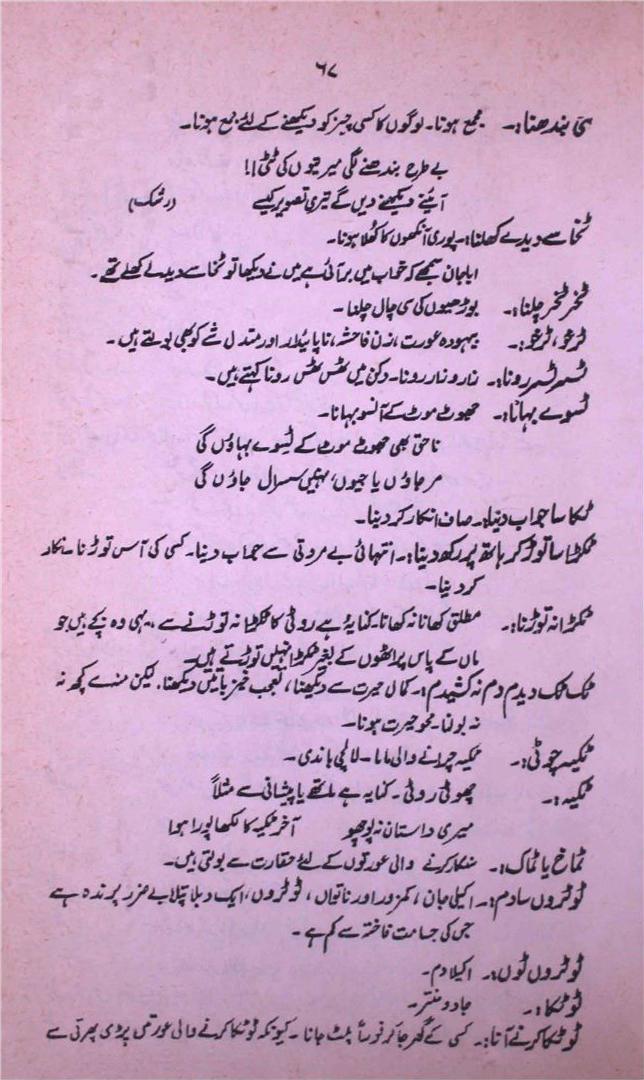 ۶۷
ٹی بندھنا:۔ مجمع ہونا۔ لوگوں کا کسی چیز کو دیکھنے کے لئے جمع ہونا۔
بے طرح بندھنے لگی میرتیوں کی ٹٹی!!
آئینے دیکھنے دیں گے تیری تصویر کیسے (رشک)
ٹخا سے دیدے کھلنا:۔ پوری آنکھوں کا کھلا ہونا۔
اباجان سمجھے کہ خواب میں برائی ہے میں نے دیکھا تو ٹخا سے دیدے کھلے تھے۔
ٹخر ٹخر چلنا:۔ بوڑھیوں کی سی چال چلنا۔
ٹرغو، ٹرغو:۔ بیہودہ عورت، زن فاحشہ، ناپائیدار اور مبتدل شے کو بھی بولتے ہیں۔
ٹسر ٹسر رونا:۔ زار و زار رونا۔ دکن میں ٹھس ٹھس رونا کہتے ہیں۔
ٹسوے بہانا:۔ جھوٹ موٹ کے آنسو بہانا۔
ناحق بھی جھوٹ موٹ کے ٹسوے بہاؤں گی
مرجاؤں یا جیوں، نہیں سسرال جاؤں گی
ٹکا سا جواب دینا:۔ صاف انکار کر دینا۔
ٹکڑا سا توڑ کر ہاتھ پر رکھ دینا:۔ انتہائی بے مروتی سے جواب دینا۔ کسی کی آس توڑنا۔ انکار
کر دینا۔
ٹکڑا نہ توڑنا:۔ مطلق کھانا نہ کھانا۔ کنایۃً ہے روٹی کا ٹکڑا نہ توڑنے سے، یہی وہ بچے ہیں جو
ماں کے پاس پراٹھوں کے بغیر ٹکڑا نہیں توڑتے ہیں۔
ٹک ٹک دیدم دم نہ کشیدم:۔ کمال حیرت سے دیکھنا، تعجب خیز باتیں دیکھنا۔ لیکن منہ سے کچھ نہ
نہ بولنا۔ محو حیرت ہونا۔
ٹکیہ چوٹی:۔ ٹکیہ چرانے والی ماما۔ لالچی باندی۔
ٹکیہ:۔ چھوٹی روٹی۔ کنایہ ہے ماتھے یا پیشانی سے مثلاً
میری داستان نہ پوچھو آخر ٹکیہ کا لکھا پورا ہوا
ٹماخ یا ٹماک:۔ سنگار کرنے والی عورتوں کے لئے حقارت سے بولتی ہیں۔
ٹوٹروں سا دم:۔ اکیلی جان، کمزور اور ناتواں، ٹوٹروں، ایک دبلا پتلا بے ضرر پرندہ ہے
جس کی جسامت فاختہ سے کم ہے۔
ٹوٹروں ٹوں:۔ اکیلا دم۔
ٹوٹکا:۔ جادو منتر۔
ٹوٹکا کرنے آنا:۔ کسی کے گھر جا کر فوراً پلٹ جانا۔ کیونکہ ٹوٹکا کرنے والی عورتیں بڑی پھرتی سے